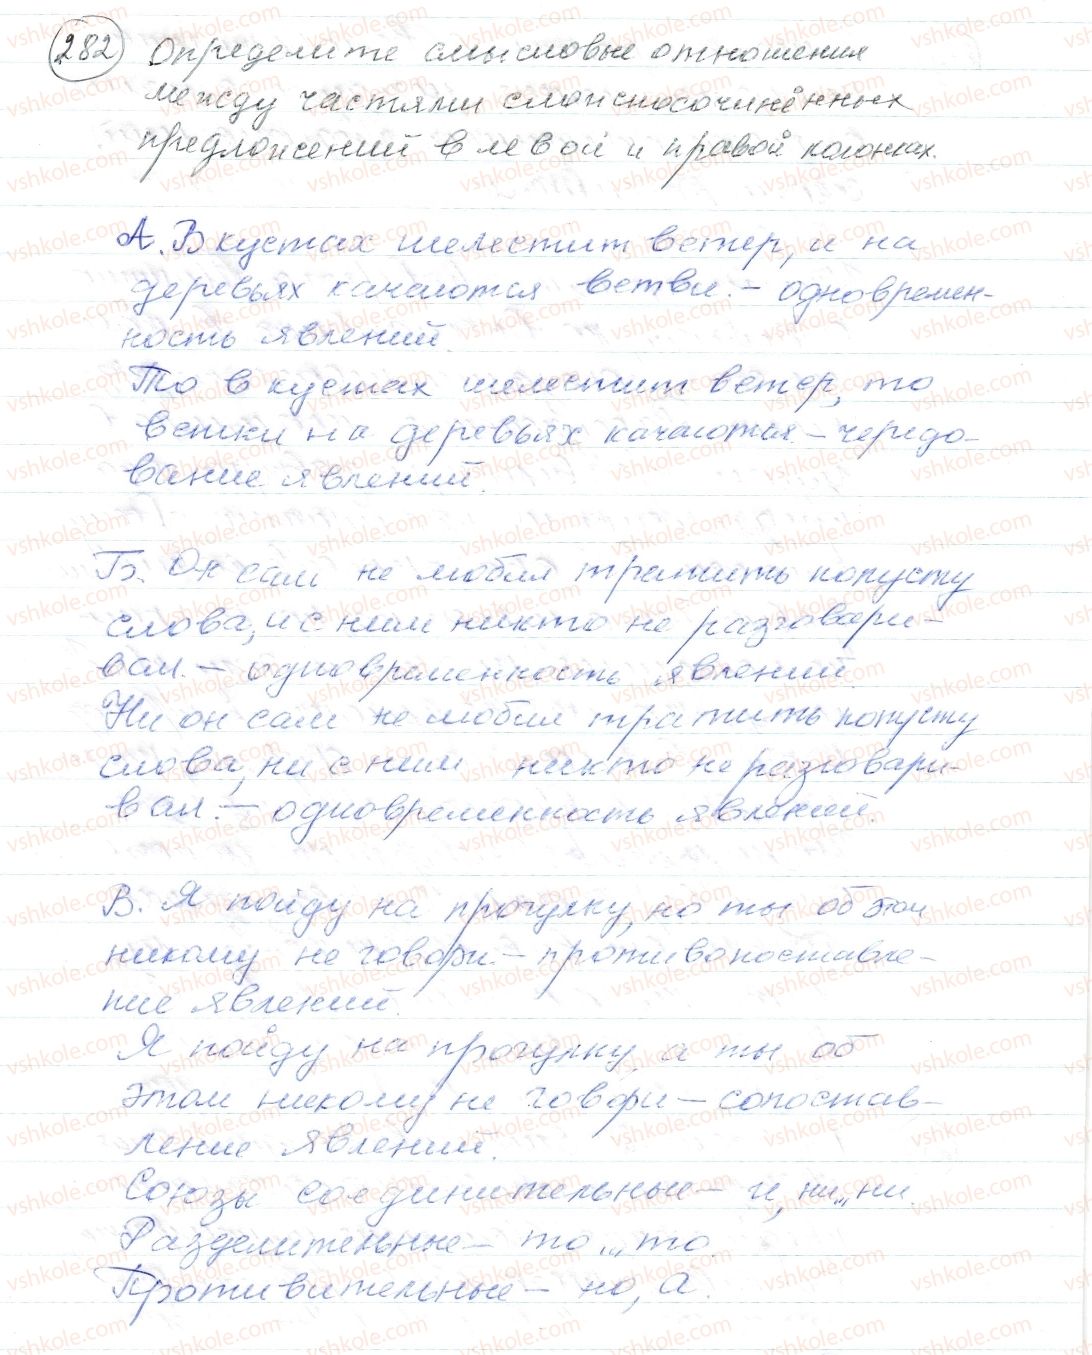 282 Определите смысловые отношения
между частями сложносочинённых
предложений в левой и правой колонках.
А. В кустах шелестит ветер, и на
деревьях качаются ветви. - одновремен-
ность явлений.
То в кустах шелестит ветер, то
ветки на деревьях качаются - чередо-
вание явлений.
Б. Он сам не любил тратить попусту
слова, и с ним никто не разговари-
вал. - одновременность явлений.
Ни он сам не любил тратить попусту
слова, ни с ним никто не разговари-
вал. - одновременность явлений.
В. Я пойду на прогулку, но ты об этом
никому не говори. - противопоставле-
ние явлений.
Я пойду на прогулку, а ты об
этом никому не говори - сопостав-
ление явлений.
Союзы соединительные - и, ни...ни.
Разделительные - то...то.
Противительные - но, а.